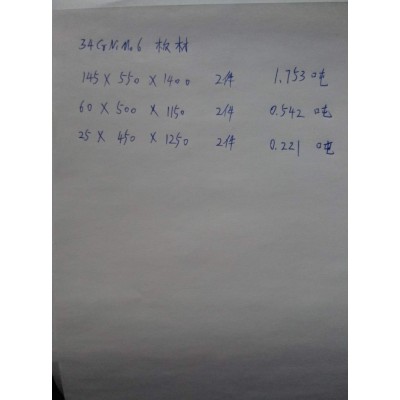 34CrNiMo6 板材
145 × 550 × 1400 2件 1.753 吨
60 × 500 × 1150 2件 0.542 吨
25 × 450 × 1250 2件 0.221 吨